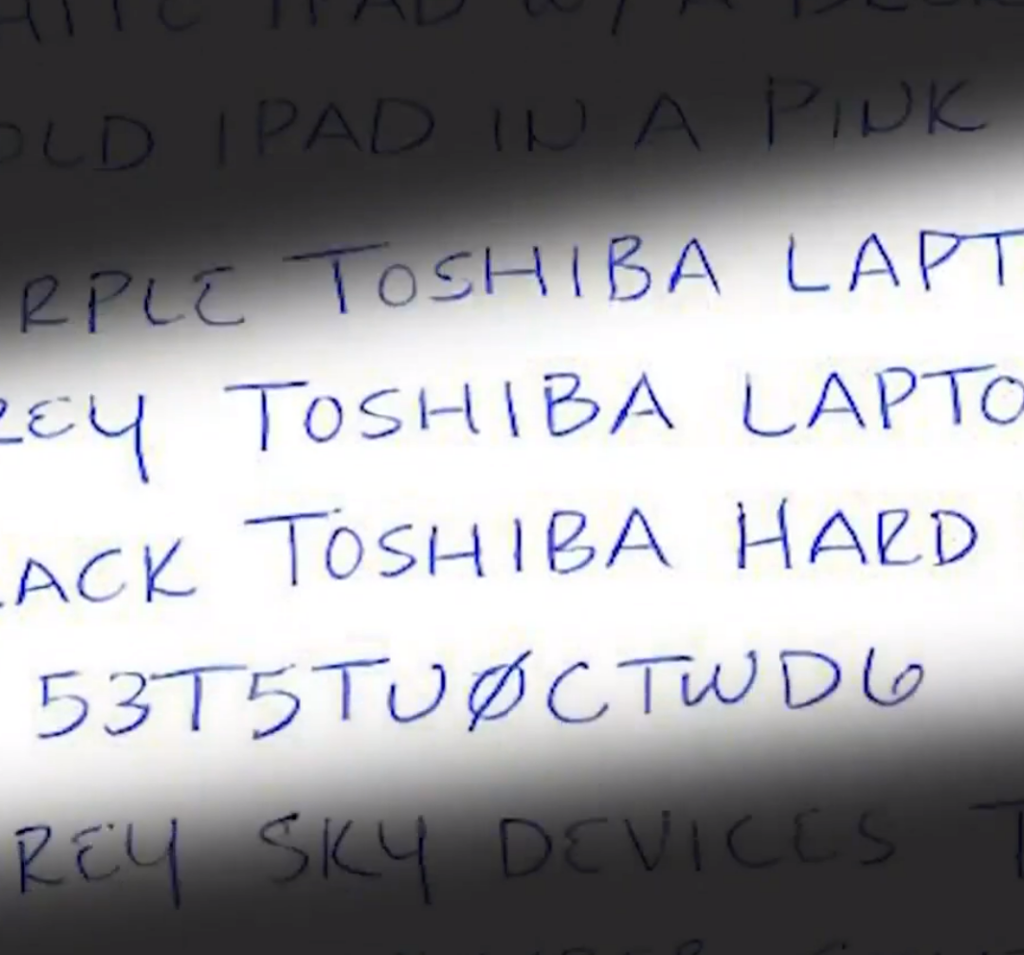 IPAD W/ A
OLD IPAD IN A PINK
RPLE TOSHIBA LAPT
REY TOSHIBA LAPTO
ACK TOSHIBA HARD
53T5TUØCTWD6
REY SKY DEVICES T